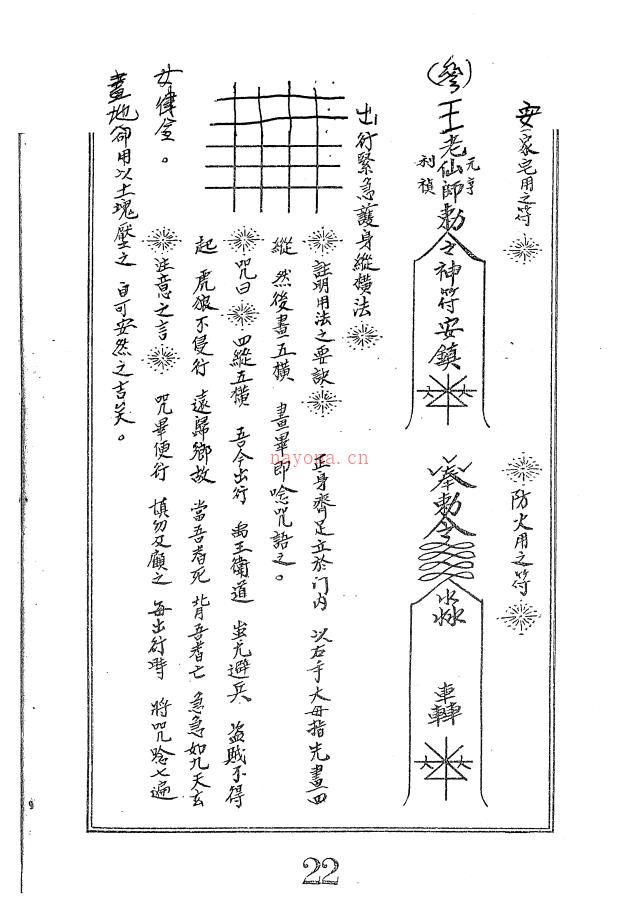 安家宅用之符
防火用之符
王老仙師勅之神符安鎮
元亨
利禎
大 大
奉勅令
淼
轟
大 大
出行緊急護身縱橫法
註明用法之要訣 正身齊足立於门内 以右手大母指先畫四
縱 然後畫五橫 畫畢即唸咒語之。
咒曰 四縱五橫 吾今出行 禹王衛道 蚩尤避兵 盗賊不得
起 虎狼不侵行 遠歸鄉故 當吾者死 背吾者亡 急急如九天玄
女律令。
注意之言 咒畢便行 慎勿反顧之 每出行時 將咒唸七遍
畫地卻用以土塊壓之 自可安然之吉矣。
nayona.cn
22